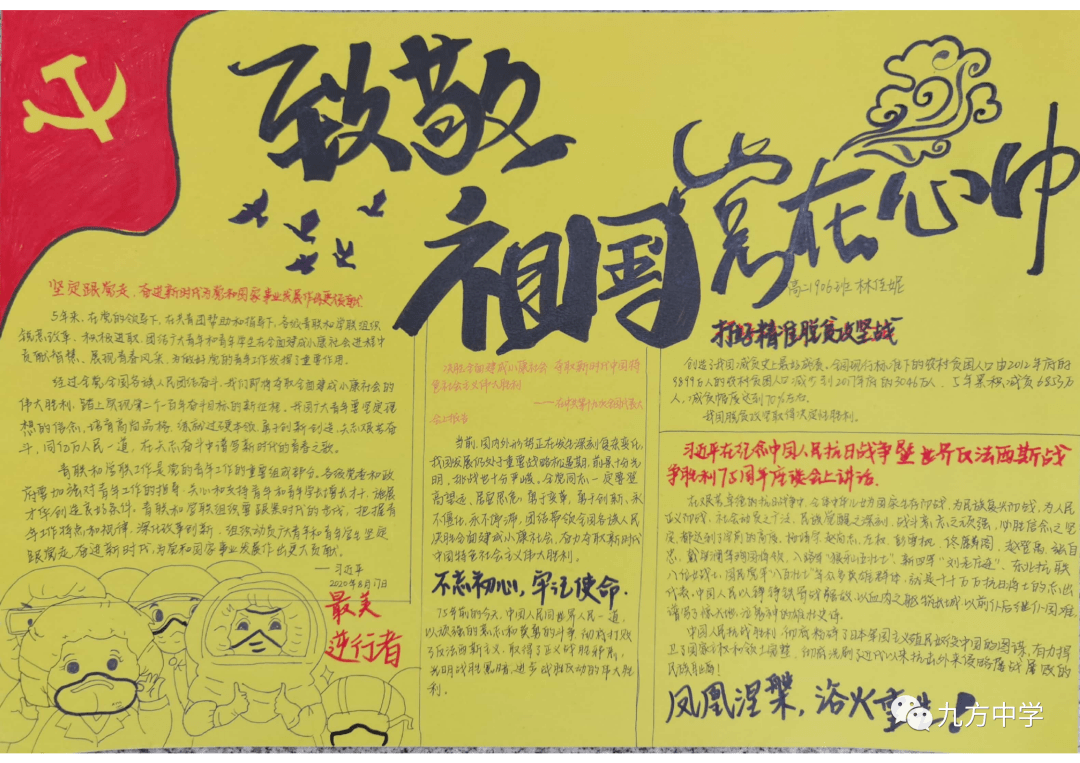 致敬
祖国
党在心中
高二1906班 林佳妮
坚定跟党走,奋进新时代为党和国家事业发展作出更大贡献
5年来,在党的领导下,在共青团帮助和指导下,各级青联和学联组织
锐意改革、积极进取,团结广大青年和青年学生在全面建成小康社会进程中
贡献智慧、展现青春风采,为做好党的青年工作发挥了重要作用。
经过全党全国各族人民团结奋斗,我们即将夺取全面建成小康社会的
伟大胜利,踏上实现第二个一百年奋斗目标的新征程。我国广大青年要坚定理
想的信念,培育高尚品格,练就过硬本领,勇于创新创造,矢志艰苦奋
斗,同亿万人民一道,在矢志奋斗中谱写新时代的青春之歌。
青联和学联工作是党的青年工作的重要组成部分。各级党委和政
府要加强对青年工作的指导,关心和支持青年和青年学生增长才干、施展
才华创造良好条件。青联和学联组织要跟紧时代的步伐,把握青
年工作特点和规律,深化改革创新,组织动员广大青年和青年学生坚定
跟党走,奋进新时代,为党和国家事业发展作出更大贡献。
—习近平
2020年8月17日
最美
逆行者
决胜全面建成小康社会 夺取新时代中国特
色社会主义伟大胜利
——在中共第十九次全国代表大
会上报告
当前,国内外形势正在发生深刻复杂变化,
我国发展仍处于重要战略机遇期,前景十分光
明,挑战也十分严峻。全党同志一定要登
高望远、居安思危,勇于变革、勇于创新,永
不僵化、永不停滞,团结带领全国各族人民
决胜全面建成小康社会,奋力夺取新时代
中国特色社会主义伟大胜利。
不忘初心,牢记使命.
75年前的今天,中国人民同世界人民一道,
以顽强的意志和英勇的斗争,彻底打败
了法西斯主义,取得了正义战胜邪恶、
光明战胜黑暗、进步战胜反动的伟大胜
利。
打好精准脱贫攻坚战
创造了我国减贫史上最好成绩。全国现行标准下的农村贫困人口由2012年底的
9899万人的农村贫困人口减少到2017年底的3046万人,5年累积减贫6853万
人,减贫幅度达到70%左右。
我国脱贫攻坚取得决定性胜利。
习近平在纪念中国人民抗日战争暨世界反法西斯战
争胜利75周年座谈会上讲话.
在艰苦卓绝的抗日战争中,全体中华儿女为国家生存而战、为民族复兴而战、为人民
正义而战,社会动员之广泛,民族觉醒之深刻,战斗意志之顽强,必胜信念之坚
定,都达到了空前的高度。杨靖宇、赵尚志、左权、彭雪枫、佟麟阁、赵登禹、张自
忠、戴安澜等殉国将领,八路军“狼牙山五壮士”、新四军“刘老庄连”、东北抗联
八位女战士,国民党军“八百壮士”等众多英雄群体,就是千千万万抗日将士的杰出
代表。中国人民以铮铮铁骨战强敌、以血肉之躯筑长城、以前仆后继赴国难,
谱写了惊天地、泣鬼神的雄壮史诗。
中国人民抗战胜利,彻底粉碎了日本军国主义殖民奴役中国的图谋,有力捍
卫了国家主权和领土完整,彻底洗刷了近代以来抗击外来侵略屡战屡败的
民族耻辱!
凤凰涅槃,浴火重生!
九方中学